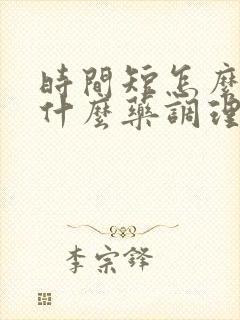 時間短怎麼
什麼藥調理
李宗鋒